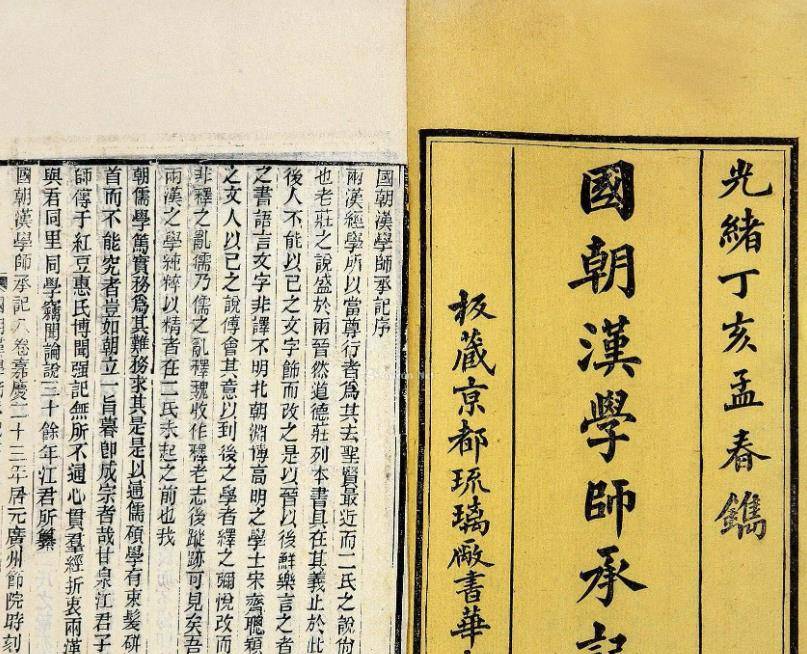 光緒丁亥孟春鐫
國朝漢學師承記
板藏京都琉璃廠書華
國朝漢學師承記序
兩漢經學所以當尊行者爲其去聖賢最近而二氏之說尙
也老莊之說盛於兩晉然道德莊列本書具在其義止於此
後人不能以己之文字飾而改之是以晉以後鮮樂言之者
之書語言文字非譯不明北朝淵博高明之學士宋齊聰穎
之文人以己之說傅會其意以到後之學者繹之彌悅改而
非釋之亂儒乃儒之亂釋魏收作釋老志後蹤跡可見矣吾
兩漢之學純粹以精者在二氏未起之前也我
朝儒學篤實務爲其難務求其是是以通儒碩學有束髮硏
首而不能究者豈如朝立一旨暮卽成宗者哉甘泉江君子
師傳于紅豆惠氏博聞強記無所不通心貫羣經折衷兩漢
與君同里同學竊聞論說三十餘年江君所纂
國朝漢學師承記八卷嘉慶二十三年居元廣州節院時刻